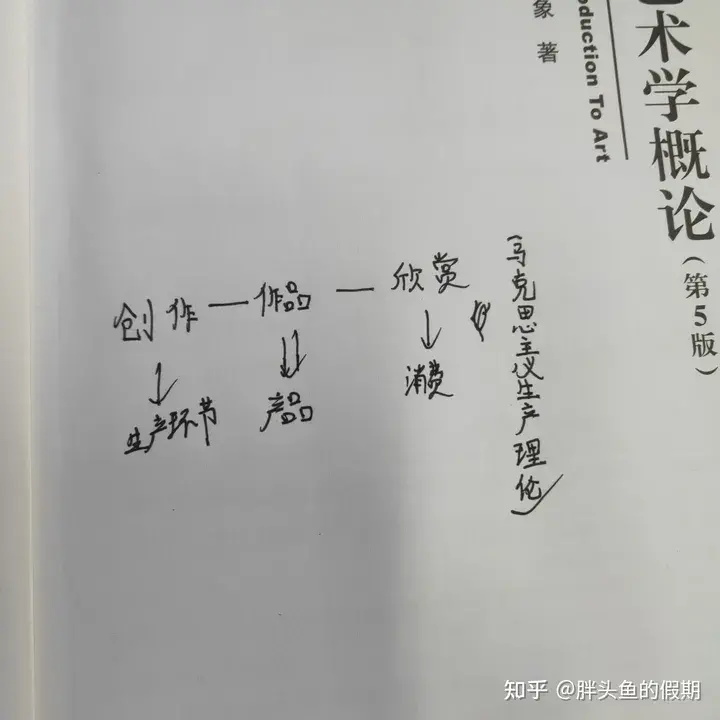 象 著
oduction To Art
术学概论
(第5版)
创作—作品—欣赏
生产环节 产品 消费
(马克思主义生产理伦)
知乎 @胖头鱼的假期